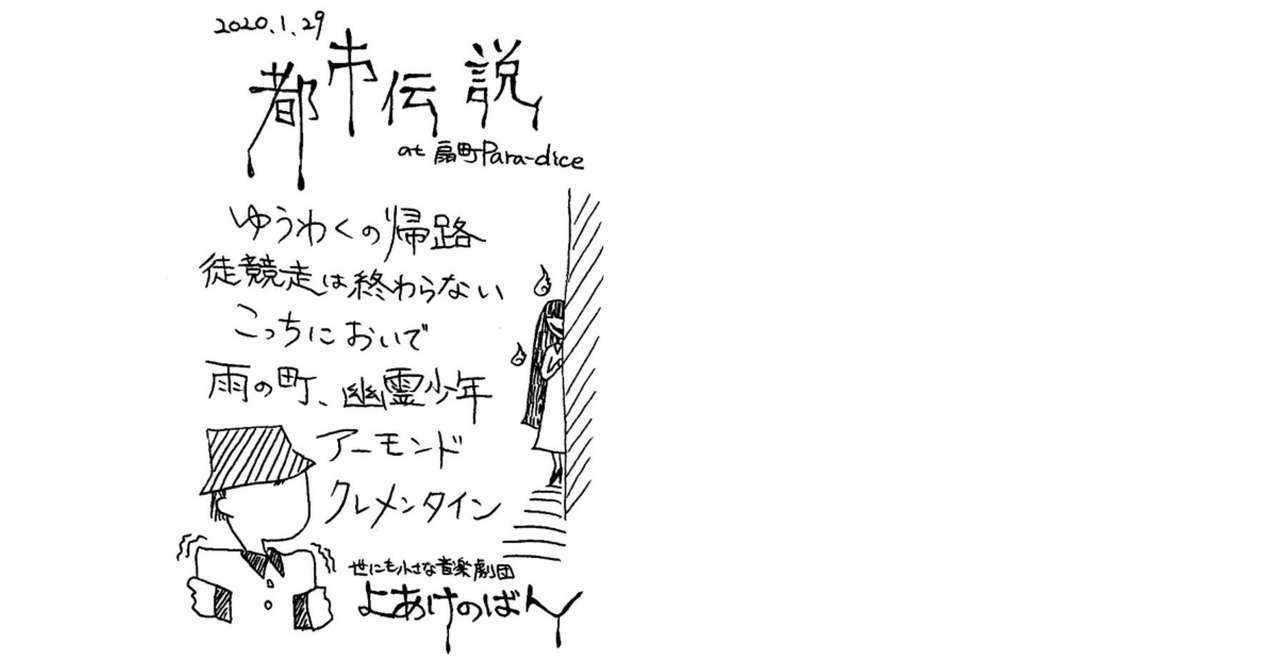 2020.1.29
都市伝説
at 扇町Para-dice
ゆうわくの帰路
徒競走は終わらない
こっちにおいで
雨の町、幽霊少年
アーモンド
クレメンタイン
世にも小さな音楽劇団
よあけのばん